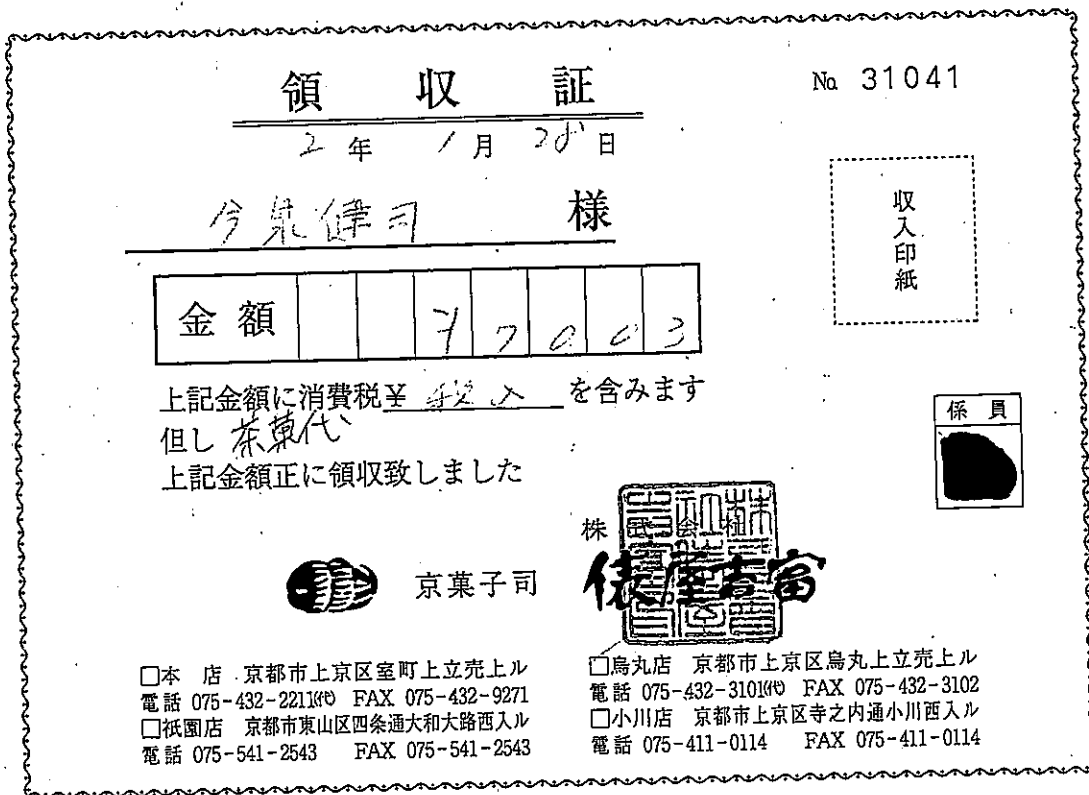 領収証
No 31041
2年 1月 28日
今泉健司 様
収入印紙
金額 ¥7003
上記金額に消費税¥ 税込 を含みます
但し 茶菓代
上記金額正に領収致しました
係員
株式会社
京菓子司 俵屋吉富
□本 店 京都市上京区室町上立売上ル
電話 075-432-2211㈹ FAX 075-432-9271
□祇園店 京都市東山区四条通大和大路西入ル
電話 075-541-2543 FAX 075-541-2543
□烏丸店 京都市上京区烏丸上立売上ル
電話 075-432-3101㈹ FAX 075-432-3102
□小川店 京都市上京区寺之内通小川西入ル
電話 075-411-0114 FAX 075-411-0114